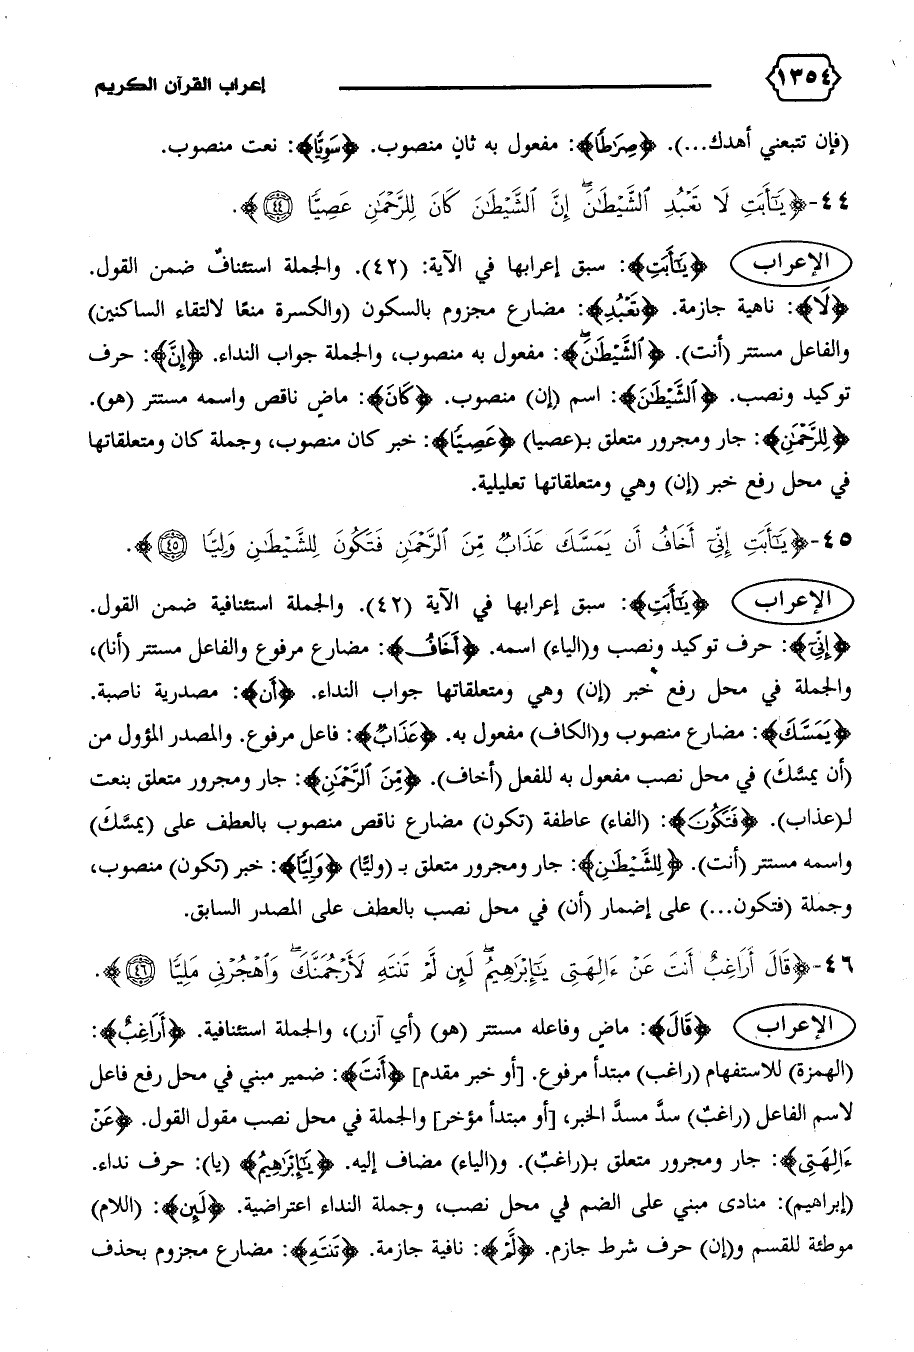 ١٣٥٤ إعراب القرآن الكريم
(فإن تتبعني أهدك...). ﴿صِرَٰطًا﴾: مفعول به ثانٍ منصوب. ﴿سَوِيًّا﴾: نعت منصوب.
٤٤-﴿يَٰٓأَبَتِ لَا تَعْبُدِ ٱلشَّيْطَٰنَۖ إِنَّ ٱلشَّيْطَٰنَ كَانَ لِلرَّحْمَٰنِ عَصِيًّا ٤٤﴾.
الإعراب ﴿يَٰٓأَبَتِ﴾: سبق إعرابها في الآية: (٤٢). والجملة استئنافٌ ضمن القول.
﴿لَا﴾: ناهية جازمة. ﴿تَعْبُدِ﴾: مضارع مجزوم بالسكون (والكسرة منعًا لالتقاء الساكنين)
والفاعل مستتر (أنت). ﴿ٱلشَّيْطَٰنَۖ﴾: مفعول به منصوب، والجملة جواب النداء. ﴿إِنَّ﴾: حرف
توكيد ونصب. ﴿ٱلشَّيْطَٰنَ﴾: اسم (إن) منصوب. ﴿كَانَ﴾: ماضٍ ناقص واسمه مستتر (هو).
﴿لِلرَّحْمَٰنِ﴾: جار ومجرور متعلق بـ(عصيا) ﴿عَصِيًّا﴾: خبر كان منصوب، وجملة كان ومتعلقاتها
في محل رفع خبر (إن) وهي ومتعلقاتها تعليلية.
٤٥-﴿يَٰٓأَبَتِ إِنِّيٓ أَخَافُ أَن يَمَسَّكَ عَذَابٌ مِّنَ ٱلرَّحْمَٰنِ فَتَكُونَ لِلشَّيْطَٰنِ وَلِيًّا ٤٥﴾.
الإعراب ﴿يَٰٓأَبَتِ﴾: سبق إعرابها في الآية (٤٢). والجملة استئنافية ضمن القول.
﴿إِنِّيٓ﴾: حرف توكيد ونصب و(الياء) اسمه. ﴿أَخَافُ﴾: مضارع مرفوع والفاعل مستتر (أنا)،
والجملة في محل رفع خبر (إن) وهي ومتعلقاتها جواب النداء. ﴿أَن﴾: مصدرية ناصبة.
﴿يَمَسَّكَ﴾: مضارع منصوب و(الكاف) مفعول به. ﴿عَذَابٌ﴾: فاعل مرفوع. والمصدر المؤول من
(أن يمسَّكَ) في محل نصب مفعول به للفعل (أخاف). ﴿مِّنَ ٱلرَّحْمَٰنِ﴾: جار ومجرور متعلق بنعت
لـ(عذاب). ﴿فَتَكُونَ﴾: (الفاء) عاطفة (تكون) مضارع ناقص منصوب بالعطف على (يمسَّكَ)
واسمه مستتر (أنت). ﴿لِلشَّيْطَٰنِ﴾: جار ومجرور متعلق بـ (وليًّا) ﴿وَلِيًّا﴾: خبر (تكون) منصوب،
وجملة (فتكون...) على إضمار (أن) في محل نصب بالعطف على المصدر السابق.
٤٦-﴿قَالَ أَرَاغِبٌ أَنتَ عَنْ ءَالِهَتِي يَٰٓإِبْرَٰهِيمُۖ لَئِن لَّمْ تَنتَهِ لَأَرْجُمَنَّكَۖ وَٱهْجُرْنِي مَلِيًّا ٤٦﴾.
الإعراب ﴿قَالَ﴾: ماضٍ وفاعله مستتر (هو) (أي آزر)، والجملة استئنافية. ﴿أَرَاغِبٌ﴾:
(الهمزة) للاستفهام (راغب) مبتدأ مرفوع. [أو خبر مقدم] ﴿أَنتَ﴾: ضمير مبني في محل رفع فاعل
لاسم الفاعل (راغبٌ) سدَّ مسدَّ الخبر، [أو مبتدأ مؤخر] والجملة في محل نصب مقول القول. ﴿عَنْ
ءَالِهَتِي﴾: جار ومجرور متعلق بـ(راغبٌ). و(الياء) مضاف إليه. ﴿يَٰٓإِبْرَٰهِيمُ﴾ (يا): حرف نداء.
(إبراهيم): منادى مبني على الضم في محل نصب، وجملة النداء اعتراضية. ﴿لَئِن﴾: (اللام)
موطئة للقسم و(إن) حرف شرط جازم. ﴿لَّمْ﴾: نافية جازمة. ﴿تَنتَهِ﴾: مضارع مجزوم بحذف